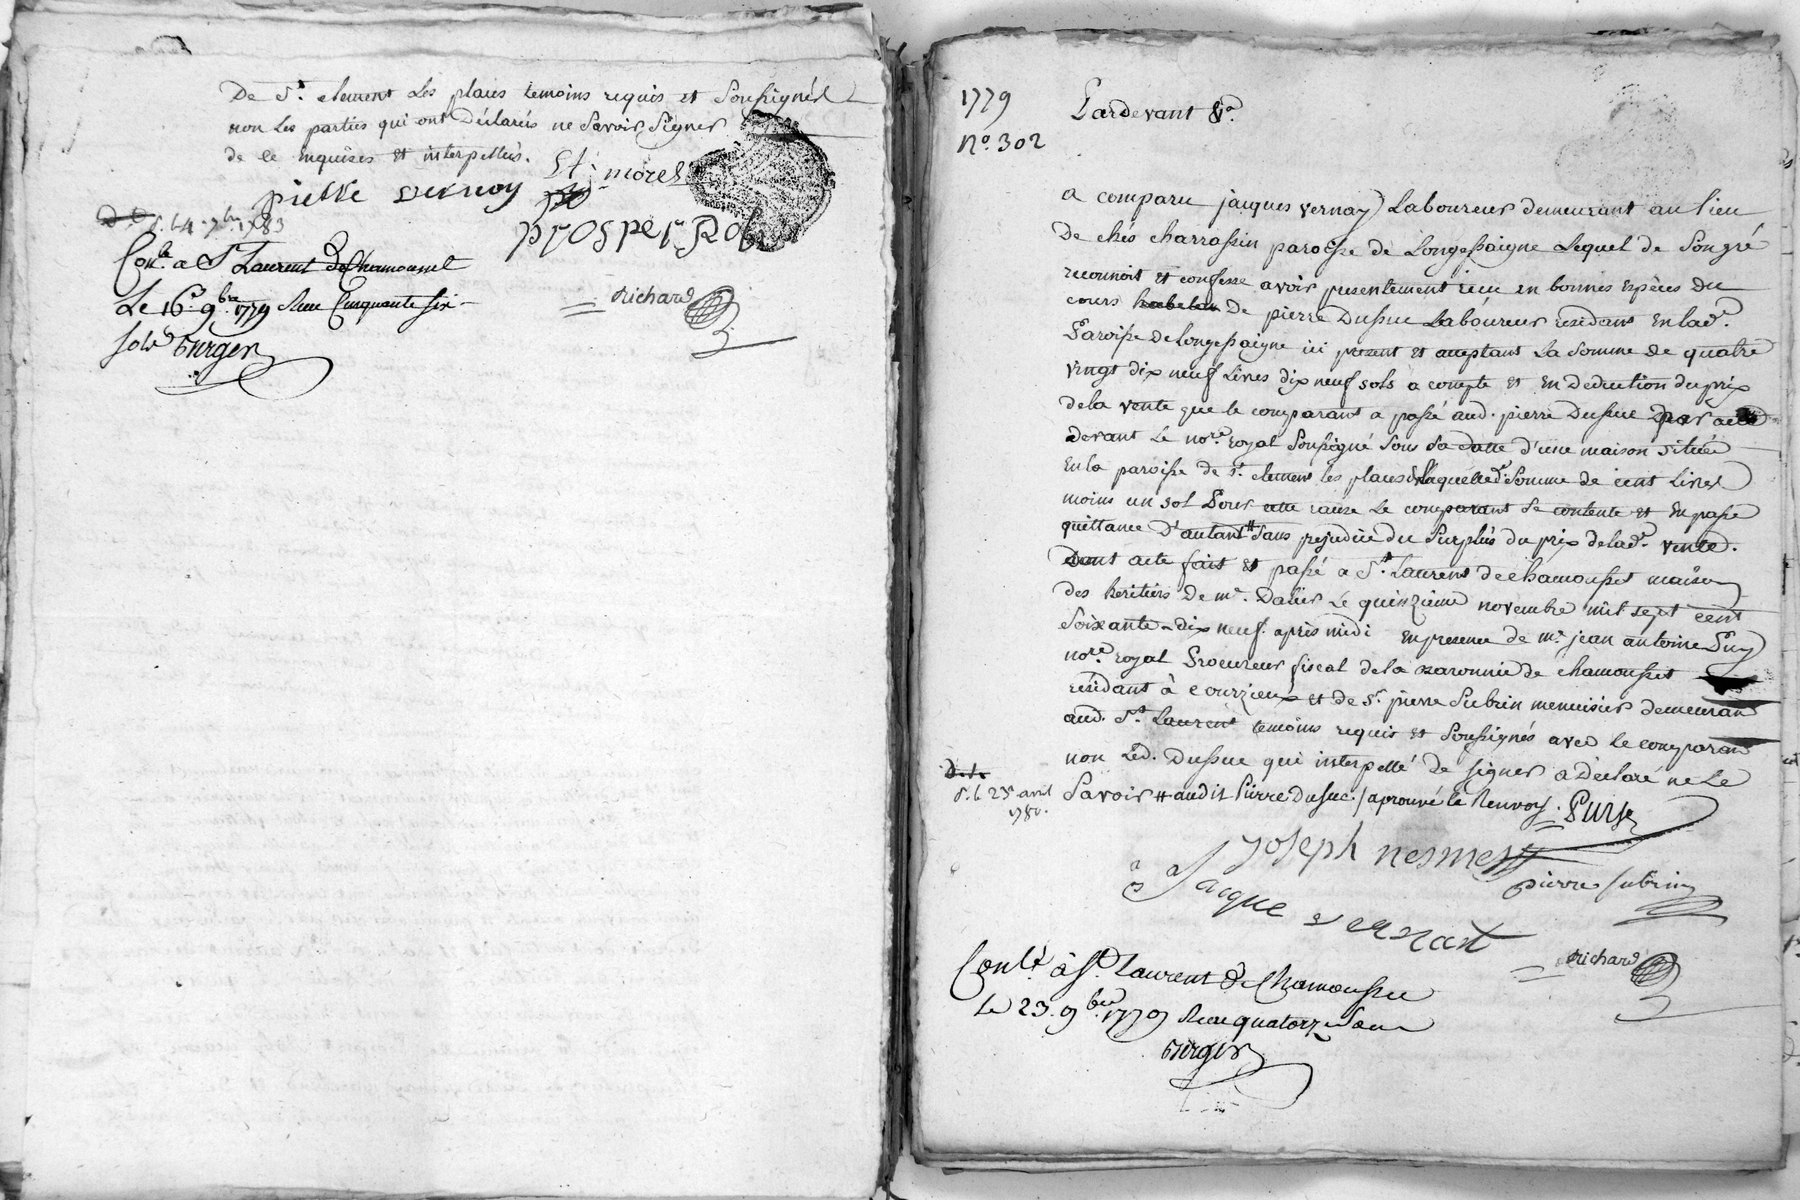 De St. clement Les places temoins requis et Soussignés
non Les parties qui ont Déclarés ne Savoir Signer
de ce enquises et interpellés.
St. morel
pierre vernay
prosper Rob
D. D. d. l. 4. 7bre 1783
Conlé. a St Laurent de Chamousset
Le 16e. 9bre. 1779 Reçu Cinquante six
sols Burger
Richard
1779
No. 302
Pardevant &a.
a comparu jacques vernay Laboureur demeurant au lieu
De chés charrassin paroisse de Longessaigne Lequel de Son gré
reconnoit et confesse avoir presentement reçu en bonnes espèces du
cours De pierre Dussuc Laboureur residant en lad.
Paroisse de Longessaigne ici present et acceptant La Somme de quatre
vingt dix neuf Livres dix neuf sols a compte et en Deduction du prix
de la vente que le comparant a passé aud. pierre Dussuc par acte
devant Le nore. royal Soussigné Sous Sa datte d'une maison située
En la paroisse de St. clement les places de laquelle d. Somme de cent Livres
moins un sol Pour cette cause Le comparant Se contente et En passe
quittance D'autant # Sans prejudice du Surplus du prix de lad. vente.
Dont acte fait et passé a St. Laurent de chamousset maison
des heritiers De me. Dalier Le quinzieme novembre mil sept cent
Soixante-dix neuf. après midi En presence de me. jean antoine Puy
nore. royal Procureur fiscal de la Baronnie de chamousset
résidant à courzieux et de Sr. pierre Subrin menuisier demeurant
aud. St. Laurent temoins requis et Soussignés avec le comparant
non Led. Dussuc qui interpellé de signer a Déclaré ne Le
Savoir # audit Pierre Dussuc / aprouvé le Renvoy. Puy
D. D.
d. l. 23e avril
1780.
Joseph nesme
pierre subrin
Jacque vernait
Richard
Conlé. à St. Laurent de Chamousset
le 23. 9bre 1779 Reçu quatorze Sous
Burger